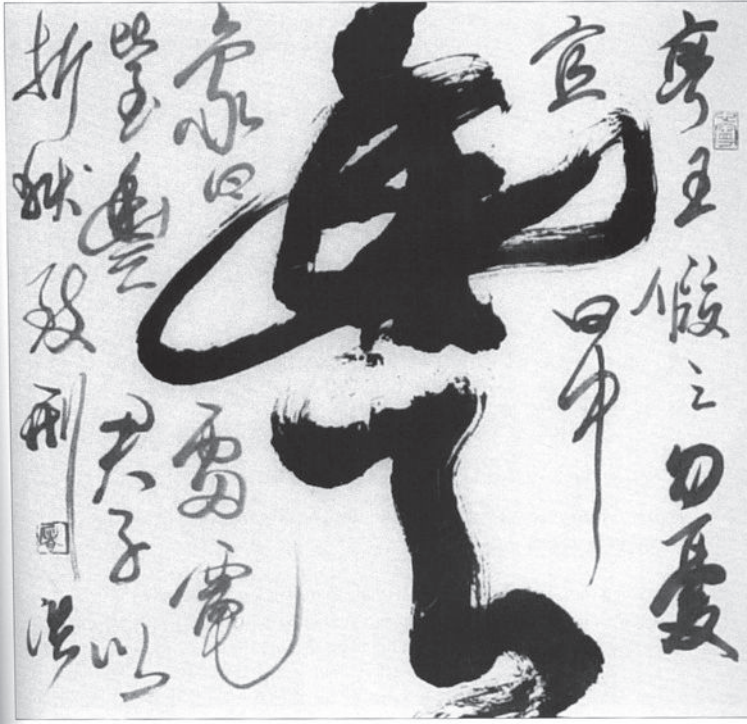 亨王假之勿憂
宜日中
豐
象曰雷電
皆至豐君子以
折獄致刑